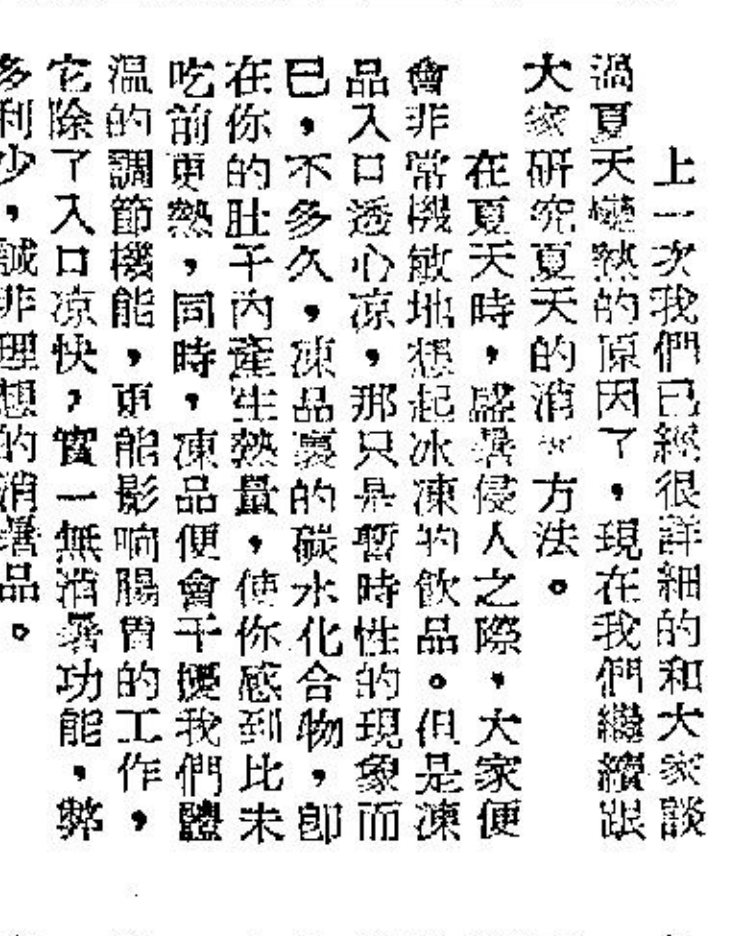 上一次我們已經很詳細的和大家談
過夏天變熱的原因了，現在我們繼續跟
大家研究夏天的消暑方法。
在夏天時，盛暑侵人之際，大家便
會非常機敏地想起冰凍的飲品。但是凍
品入口透心凉，那只是暫時性的現象而
已，不多久，凍品裏的碳水化合物，卽
在你的肚子內產生熱量，使你感到比未
吃前更熱，同時，凍品便會干擾我們體
溫的調節機能，更能影响腸胃的工作，
它除了入口凉快，實一無消暑功能，弊
多利少，誠非理想的消暑品。